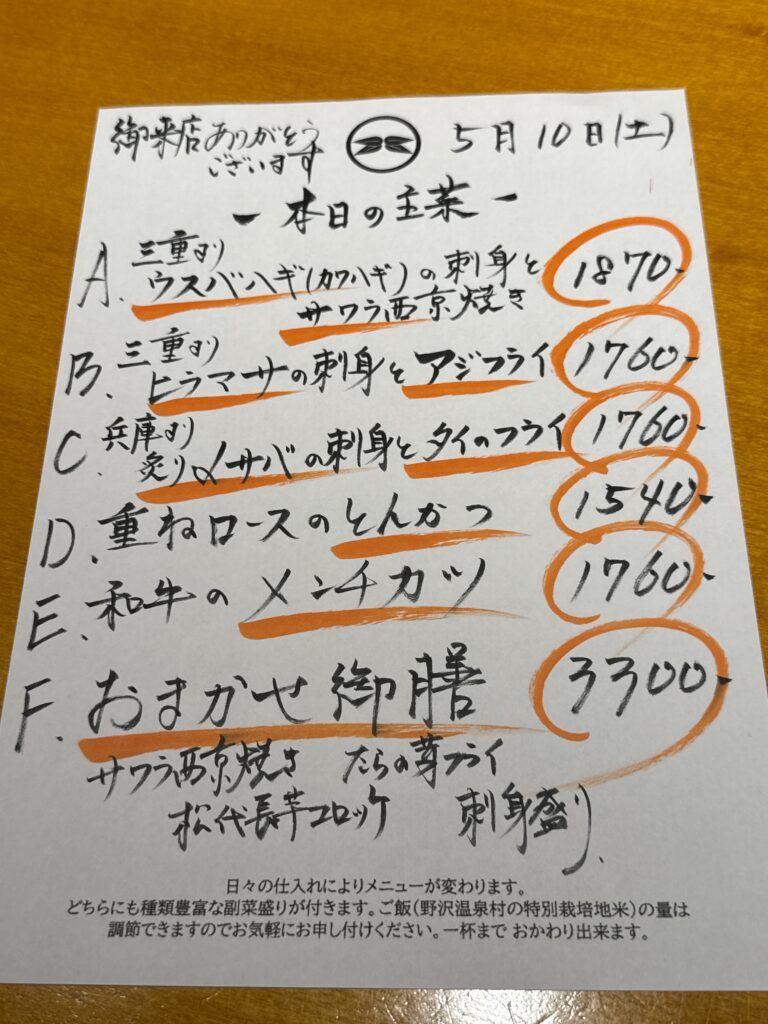 御来店ありがとう
ございます
5月10日(土)
-本日の主菜-
A. 三重より
ウスバハギ(カワハギ)の刺身と
サワラ西京焼き
1870-
B. 三重より
ヒラマサの刺身とアジフライ
1760-
C. 兵庫より
炙り〆サバの刺身とタイのフライ
1760-
D. 重ねロースのとんかつ
1540-
E. 和牛のメンチカツ
1760-
F. おまかせ御膳
3300-
サワラ西京焼き たらの芽フライ
松代長芋コロッケ 刺身盛り.
日々の仕入れによりメニューが変わります。
どちらにも種類豊富な副菜盛りが付きます。ご飯(野沢温泉村の特別栽培地米)の量は
調節できますのでお気軽にお申し付けください。一杯まで おかわり出来ます。